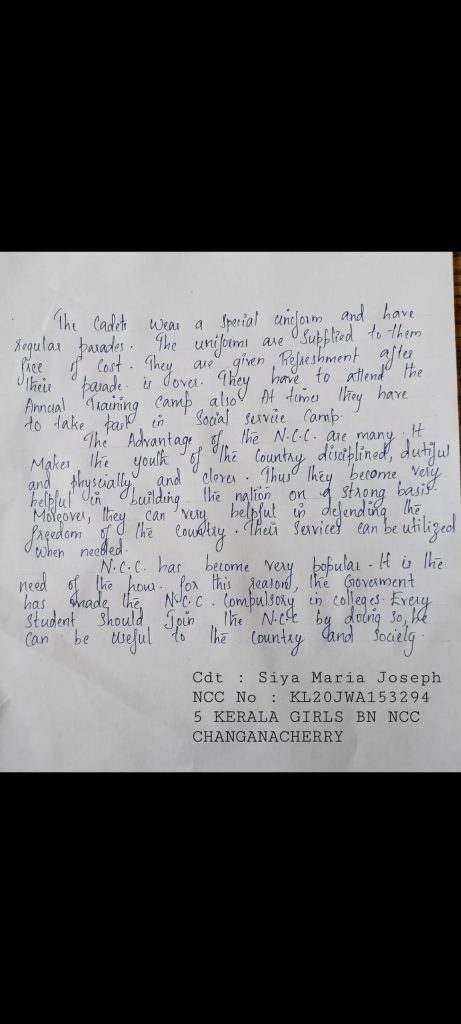 The Cadets wear a Special uniform and have
regular parades. The uniforms are Supplied to them
free of cost. They are given Refreshment after
their parade. is over. They have to attend the
Annual Training Camp also At times they have
to take part in Social service Camp.
The Advantage of the N.C.C. are many. It
Makes the youth of the Country disciplined, dutiful
and physcially and clover. Thus they become very
helpful in building the nation on a strong basis.
Moreover, they can very helpful in defending the
freedom of the country. Their services can be utilized
when needed.
N.C.C. has become very popular. It is the
need of the hour. for this reason, the Goverment
has made the N.C.C. Compulsory in colleges. Every
Student Should join the N.C.C by doing so, he
can be useful to the country and society.
Cdt : Siya Maria Joseph
NCC No : KL20JWA153294
5 KERALA GIRLS BN NCC
CHANGANACHERRY